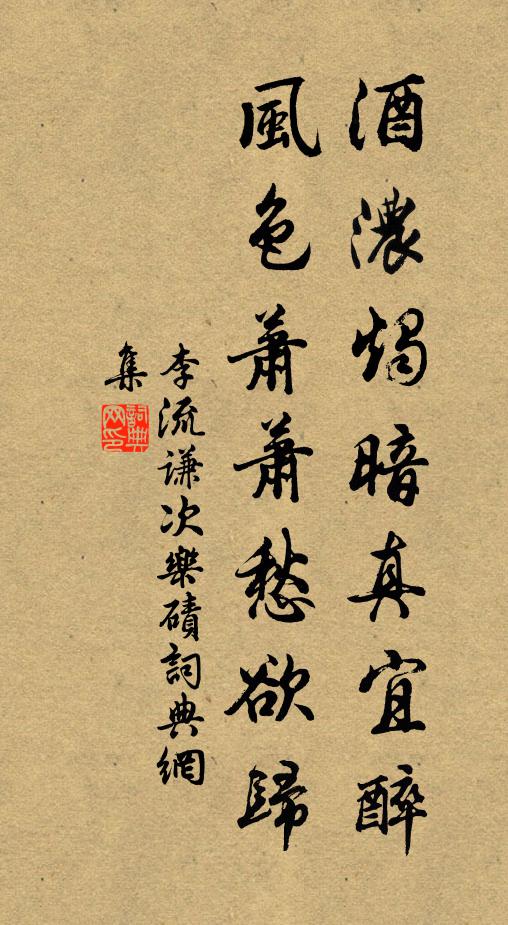 酒濃燭暗真宜醉
風色蕭蕭愁欲歸
李流謙次樂磧詞典網
集
詞典网印